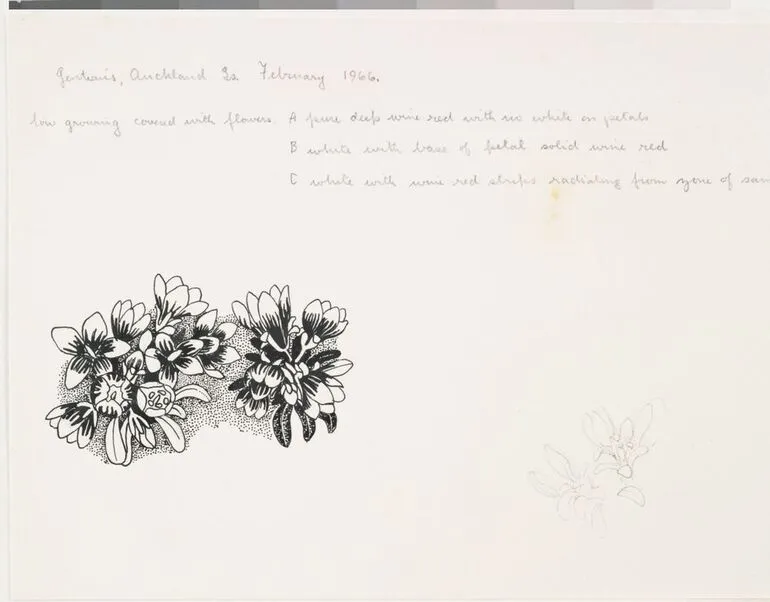 Gentians, Auckland Is. February 1966.
low growing covered with flowers. A pure deep wine red with no white on petals
B white with base of petal solid wine red
C white with wine red stripes radiating from zone of sam